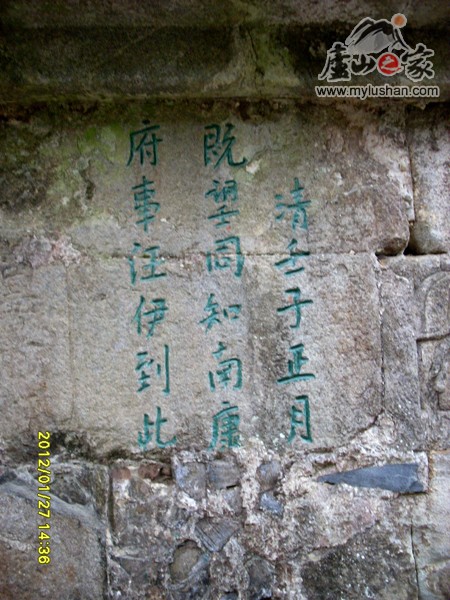 清壬子正月
既望同知南康
府事汪伊到此
庐山之家
www.mylushan.com
2012/01/27 14:36